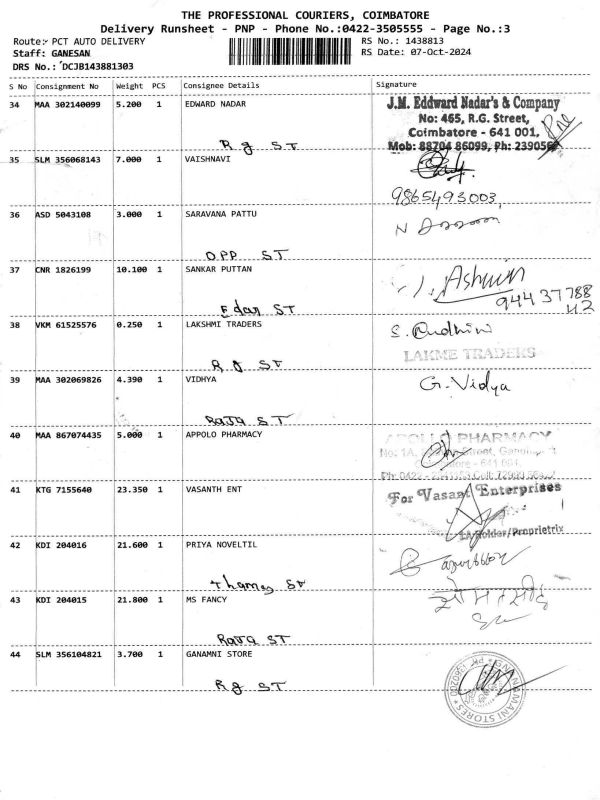 THE PROFESSIONAL COURIERS, COIMBATORE
Delivery Runsheet - PNP - Phone No.:0422-3505555 - Page No.:3
Route: PCT AUTO DELIVERY
RS No.: 1438813
Staff: GANESAN
RS Date: 07-Oct-2024
DRS No.: DCJB143881303
S No Consignment No Weight PCS Consignee Details Signature
34 MAA 302140099 5.200 1 EDWARD NADAR
J.M. Eddward Nadar's & Company
No: 465, R.G. Street,
Coimbatore - 641 001,
Mob: 88704 86099, Ph: 239056
R g ST
35 SLM 356068143 7.000 1 VAISHNAVI
9865493003,
36 ASD 5043108 3.000 1 SARAVANA PATTU
OPP ST
37 CNR 1826199 10.100 1 SANKAR PUTTAN
Ashwin
94437788
42
Edar ST
38 VKM 61525576 0.250 1 LAKSHMI TRADERS
LAKME TRADERS
R g ST
39 MAA 302069826 4.390 1 VIDHYA
G. Vidya
RAJA ST
40 MAA 867074435 5.000 1 APPOLO PHARMACY
APOLLO PHARMACY
No: 1A, Street,
Coimbatore - 641 001.
41 KTG 7155640 23.350 1 VASANTH ENT
For Vasant Enterprises
Holder/Proprietrix
42 KDI 204016 21.600 1 PRIYA NOVELTIL
Thamas ST
43 KDI 204015 21.800 1 MS FANCY
Raja ST
44 SLM 356104821 3.700 1 GANAMNI STORE
R g ST